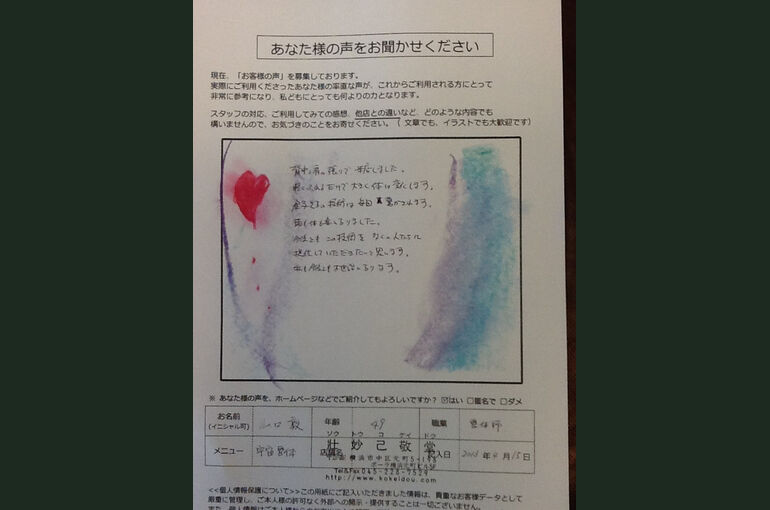 あなた様の声をお聞かせください
現在、「お客様の声」を募集しております。
実際にご利用くださったあなた様の率直な声が、これからご利用される方にとって
非常に参考になり、私どもにとっても何よりの力となります。
スタッフの対応、ご利用してみての感想、他店との違いなど、どのような内容でも
構いませんので、お気づきのことをお寄せください。（文章でも、イラストでも大歓迎です）
背中と肩の張りで来店しました。
軽くふれるだけで大きく体は変化します。
技術は毎回驚かされます。
頭も体も軽くなりました。
今後ともこの技術を多くの人たちに
提供していただきたいと思います。
※ あなた様の声を、ホームページなどでご紹介してもよろしいですか？ ☑はい □匿名で □ダメ
お名前 山口 敦 年齢 49 職業 整体師
(イニシャル可)
ソウ トウ コ ケイ ドウ
メニュー 宇宙整体 店舗名 壮妙己敬堂 記入日 2013年4月15日
横浜市中区元町5-198
ポーラ横浜元町ビル5F
Tel&Fax 045-228-7529
http://www.hokeidou.com
<<個人情報保護について>>この用紙にご記入いただきました情報は、貴重なお客様データとして
厳重に管理し、ご本人様の許可なく外部への開示・提供することは一切ございません。